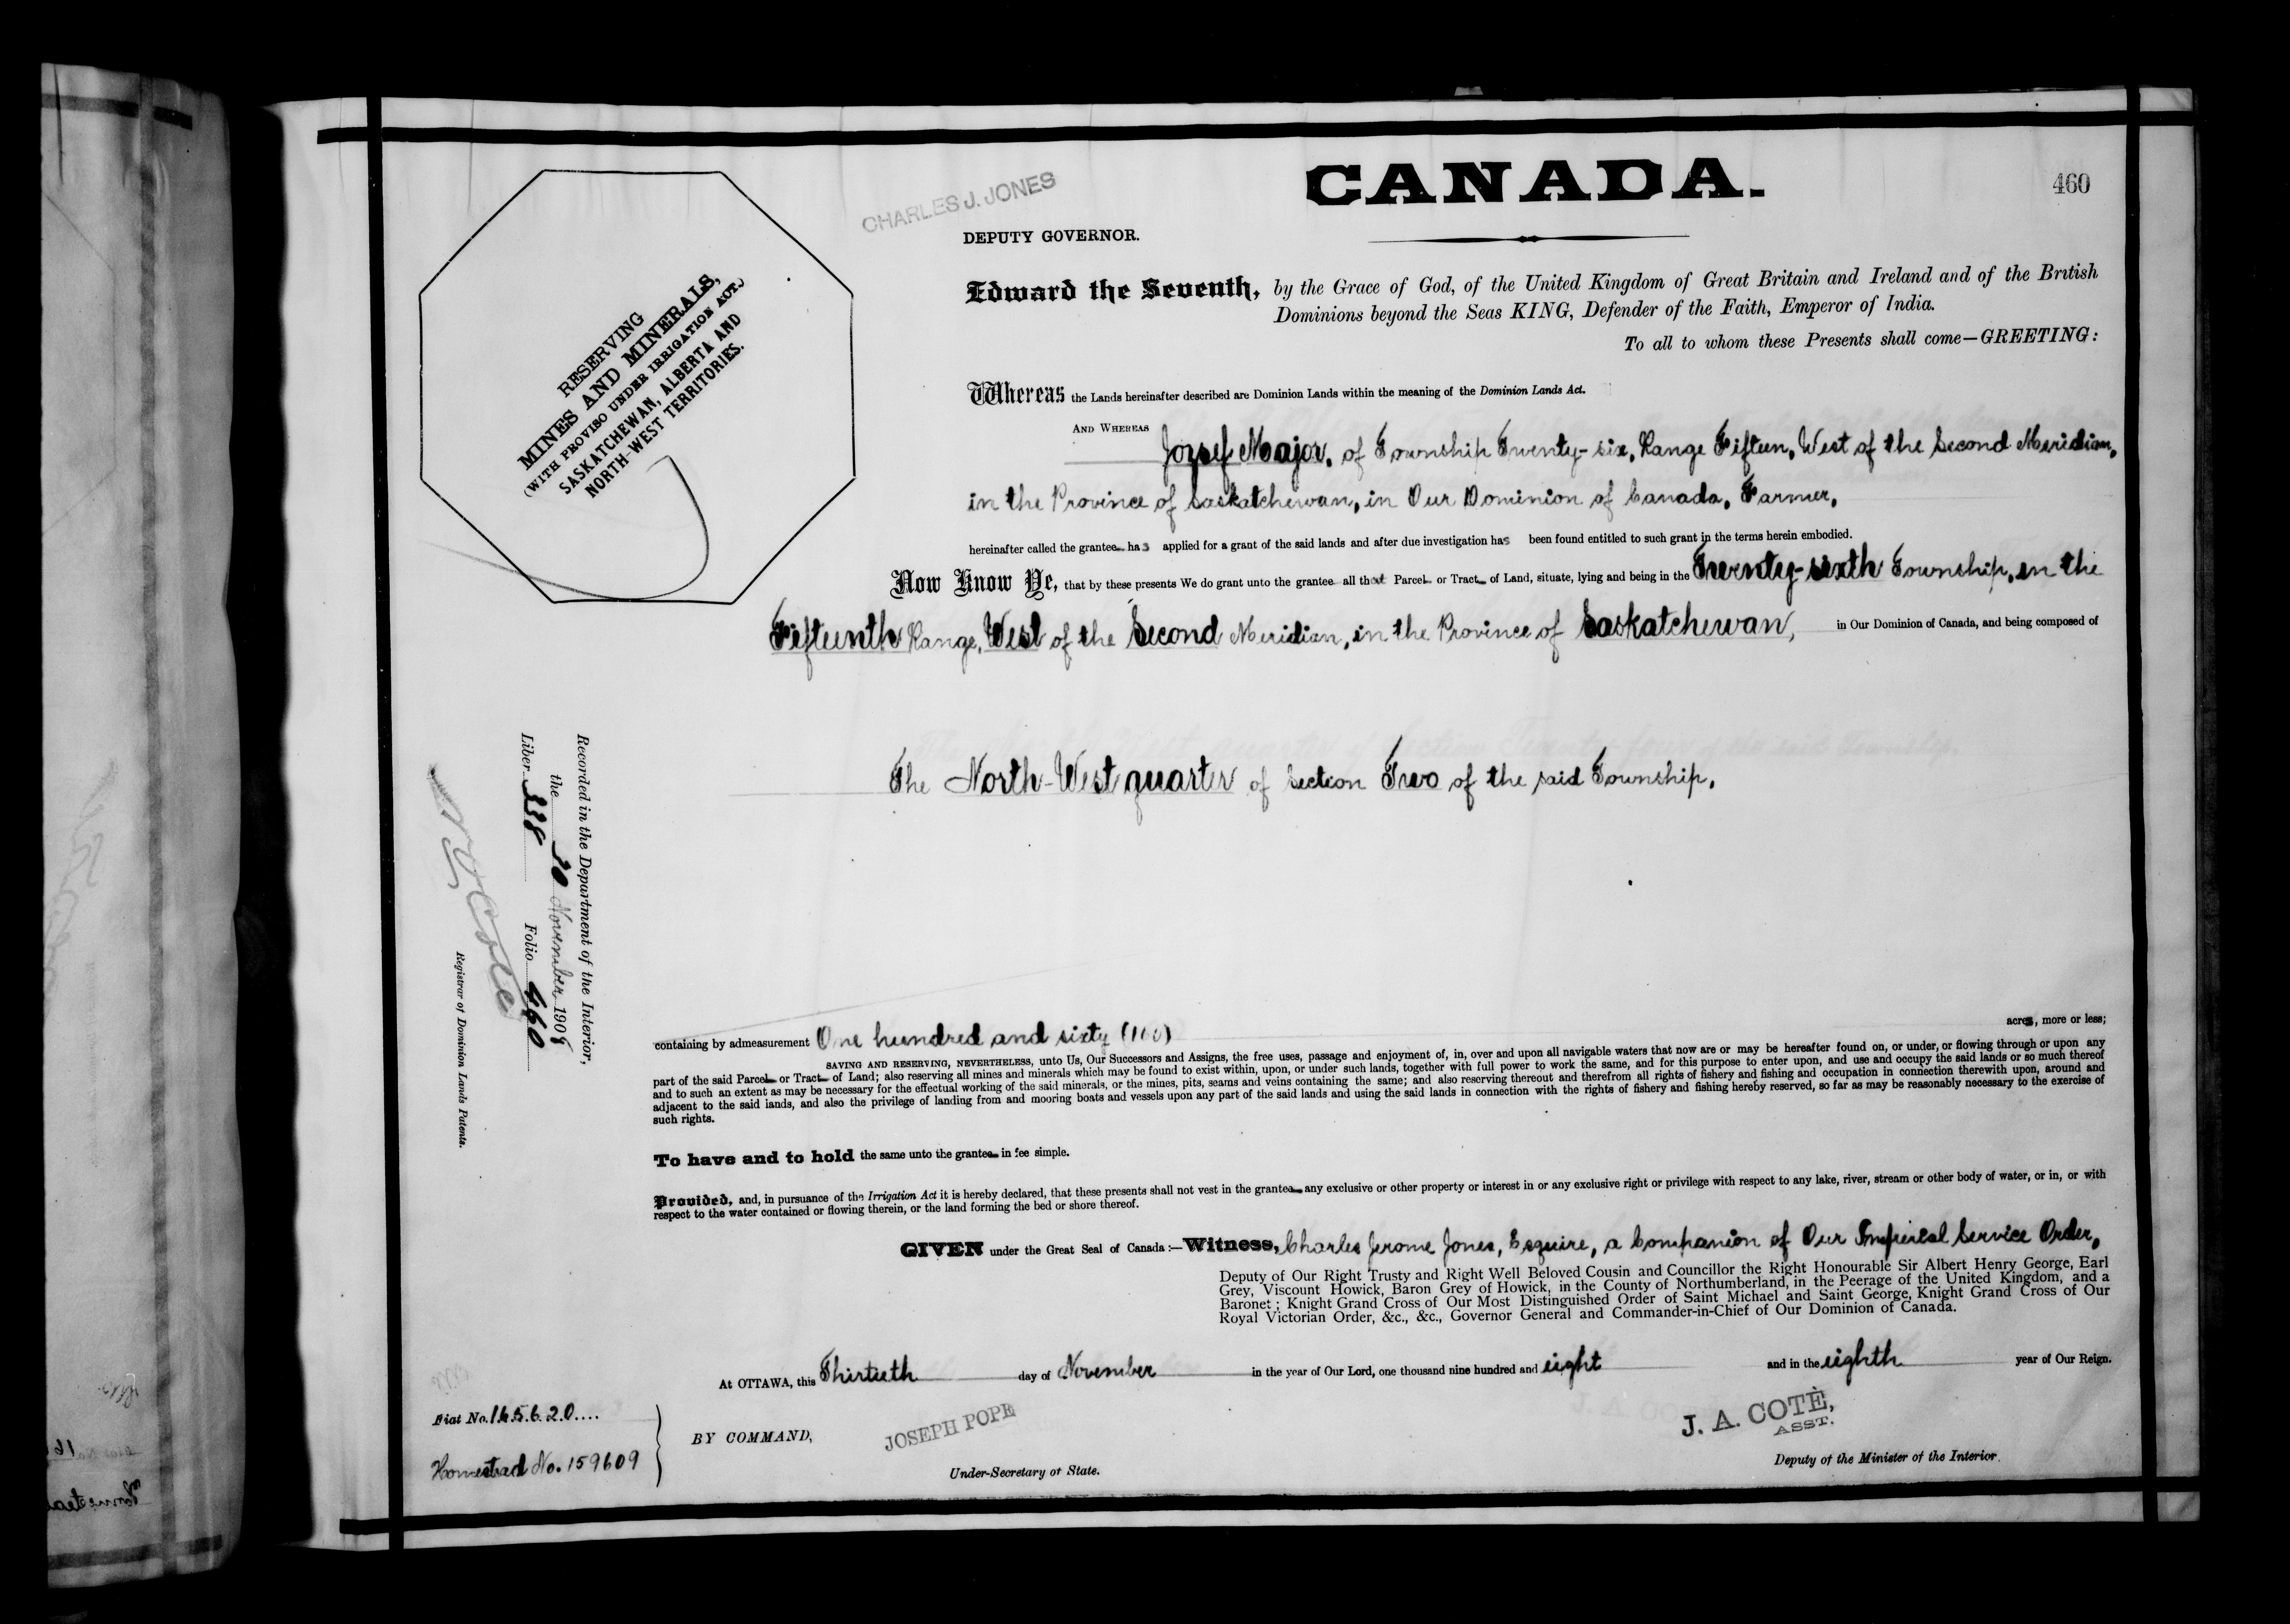 CANADA.
460
CHARLES J. JONES
DEPUTY GOVERNOR.
RESERVING
MINES AND MINERALS,
(WITH PROVISO UNDER IRRIGATION ACT.)
SASKATCHEWAN, ALBERTA AND
NORTH-WEST TERRITORIES.
Edward the Seventh, by the Grace of God, of the United Kingdom of Great Britain and Ireland and of the British
Dominions beyond the Seas KING, Defender of the Faith, Emperor of India.
To all to whom these Presents shall come—GREETING:
Whereas the Lands hereinafter described are Dominion Lands within the meaning of the Dominion Lands Act.
AND WHEREAS Jozsef Major, of Township Twenty-six, Range Fifteen, West of the Second Meridian,
in the Province of Saskatchewan, in Our Dominion of Canada, Farmer,
hereinafter called the grantee has applied for a grant of the said lands and after due investigation has been found entitled to such grant in the terms herein embodied.
Now Know Ye, that by these presents We do grant unto the grantee all that Parcel or Tract of Land, situate, lying and being in the Twenty-sixth Township, in the
Fifteenth Range, West of the Second Meridian, in the Province of Saskatchewan, in Our Dominion of Canada, and being composed of
The North-West quarter of Section Two of the said Township.
Recorded in the Department of the Interior,
the 30 November 1908
Liber 338 Folio 460
Registrar of Dominion Lands Patents.
containing by admeasurement One hundred and sixty (160) acres, more or less;
SAVING AND RESERVING, NEVERTHELESS, unto Us, Our Successors and Assigns, the free uses, passage and enjoyment of, in, over and upon all navigable waters that now are or may be hereafter found on, or under, or flowing through or upon any
part of the said Parcel or Tract of Land; also reserving all mines and minerals which may be found to exist within, upon, or under such lands, together with full power to work the same, and for this purpose to enter upon, and use and occupy the said lands or so much thereof
and to such an extent as may be necessary for the effectual working of the said minerals, or the mines, pits, seams and veins containing the same; and also reserving thereout and therefrom all rights of fishery and fishing and occupation in connection therewith upon, around and
adjacent to the said lands, and also the privilege of landing from and mooring boats and vessels upon any part of the said lands and using the said lands in connection with the rights of fishery and fishing hereby reserved, so far as may be reasonably necessary to the exercise of
such rights.
To have and to hold the same unto the grantee in fee simple.
Provided, and, in pursuance of the Irrigation Act it is hereby declared, that these presents shall not vest in the grantee any exclusive or other property or interest in or any exclusive right or privilege with respect to any lake, river, stream or other body of water, or in, or with
respect to the water contained or flowing therein, or the land forming the bed or shore thereof.
GIVEN under the Great Seal of Canada:—Witness, Charles Jerome Jones, Esquire, a Companion of Our Imperial Service Order,
Deputy of Our Right Trusty and Right Well Beloved Cousin and Councillor the Right Honourable Sir Albert Henry George, Earl
Grey, Viscount Howick, Baron Grey of Howick, in the County of Northumberland, in the Peerage of the United Kingdom, and a
Baronet; Knight Grand Cross of Our Most Distinguished Order of Saint Michael and Saint George, Knight Grand Cross of Our
Royal Victorian Order, &c., &c., Governor General and Commander-in-Chief of Our Dominion of Canada.
At OTTAWA, this Thirtieth day of November in the year of Our Lord, one thousand nine hundred and eight and in the eighth year of Our Reign.
Fiat No. 165620....
Homestead No. 159609
BY COMMAND,
JOSEPH POPE
Under-Secretary of State.
J. A. COTÈ,
ASST.
Deputy of the Minister of the Interior.